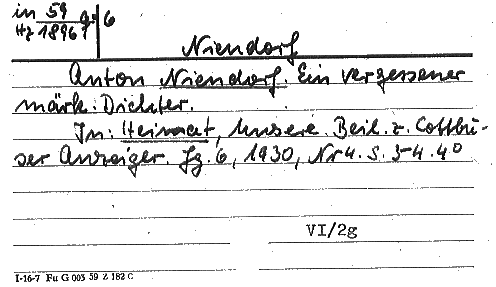 in 59 g. 6
Hz 18961
Niendorf
Anton Niendorf. Ein vergessener
märk. Dichter.
In: Heimat, Unsere. Beil. z. Cottbu-
ser Anzeiger. Jg. 6, 1930, Nr 4. S. 3-4. 4°
VI/2g
I-16-7 Fu G 003 59 Z 182 C